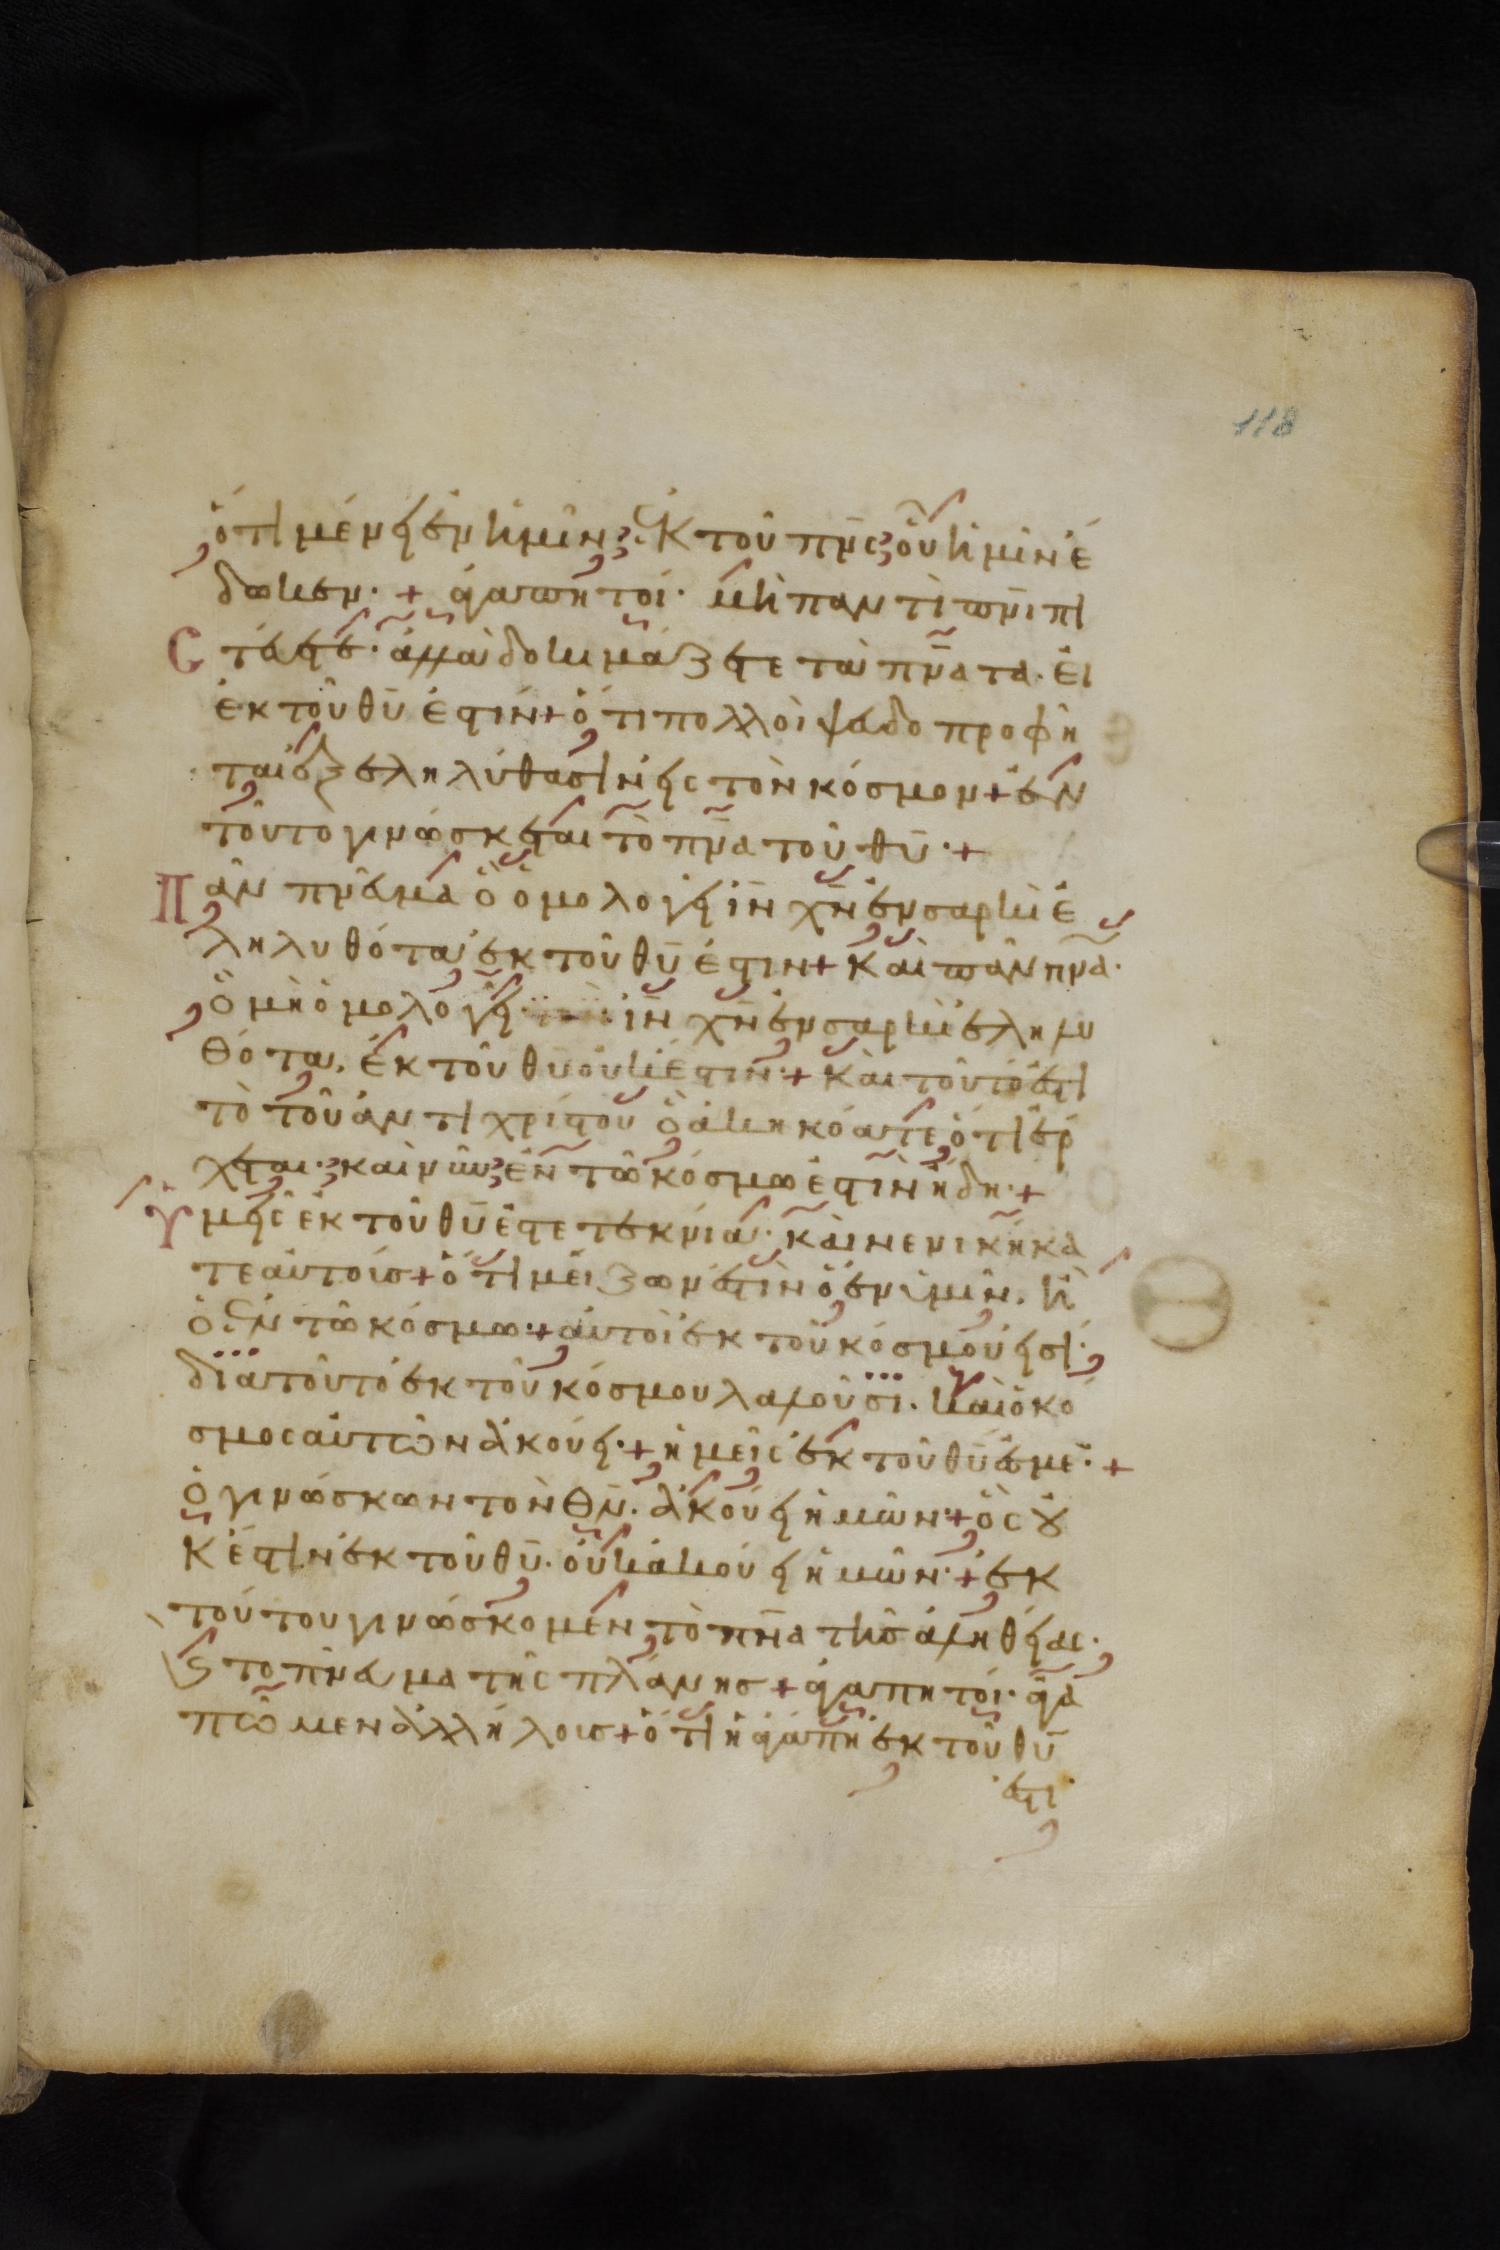 118
ὅτι μένει ἐν ἡμῖν· ἐκ τοῦ πν̅ς οὗ ἡμῖν ἔ
δωκεν· + ἀγαπητοί· μὴ παντὶ πν̅ι πι
στεύετε· ἀλλὰ δοκιμάζετε τὰ πν̅ατα· εἰ
ἐκ τοῦ θυ̅ ἐστιν + ὅτι πολλοὶ ψευδοπροφῆ
ται ἐξεληλύθασιν εἰς τὸν κόσμον + ἐν
τούτο γινώσκεται τὸ πν̅α τοῦ θυ̅· +
Πᾶν πνεύμα ὃ ὁμολογεῖ ιν̅ χν̅ ἐν σαρκὶ ἐ
ληλυθότα ἐκ τοῦ θυ̅ ἐστιν + καὶ πᾶν πν̅α·
ὃ μὴ ὁμολογεῖ· ιν̅ χν̅ ἐν σαρκὶ ἐληλυ
θότα, ἐκ τοῦ θυ̅ οὐκ ἔστιν· + καὶ τοῦτό ἐστι
τὸ τοῦ ἀντιχρίστου ὃ ἀκηκόατε ὅτι ἔρ
χεται· καὶ νῦν ἐν τῶ κόσμω ἐστὶν ἤδη· +
Ὑμεῖς ἐκ τοῦ θυ̅ ἐστε τεκνία· καὶ νενικήκα
τε αὐτοίσ + ὅτι μείζων ἐστὶν ὁ ἐν ὑμῖν, ἢ
ὁ ἐν τῶ κόσμω· + αὐτοὶ ἐκ τοῦ κόσμου εἰσί·
διατοῦτο ἐκ τοῦ κόσμου λαλοῦσι· καὶ ὁ κό
σμος αὐτῶν ἀκούει· + ἡμεῖς ἐκ τοῦ θυ̅ ἐσμέ̅· +
ὁ γινώσκων τὸν θν̅· ἀκούει ἡμῶν· + ὃς οὐ
κ ἔστιν ἐκ τοῦ θυ̅· οὐκ ἀκούει ἡμῶν· + ἐκ
τούτου γινώσκομεν τὸ πν̅α τῆσ ἀληθείας·
κ το πνεύμα τῆς πλάνησ + ἀγαπητοί· ἀγα
πῶμεν ἀλλήλουσ + ὅτι ἡ ἀγάπη ἐκ τοῦ θυ̅
ἐστι·